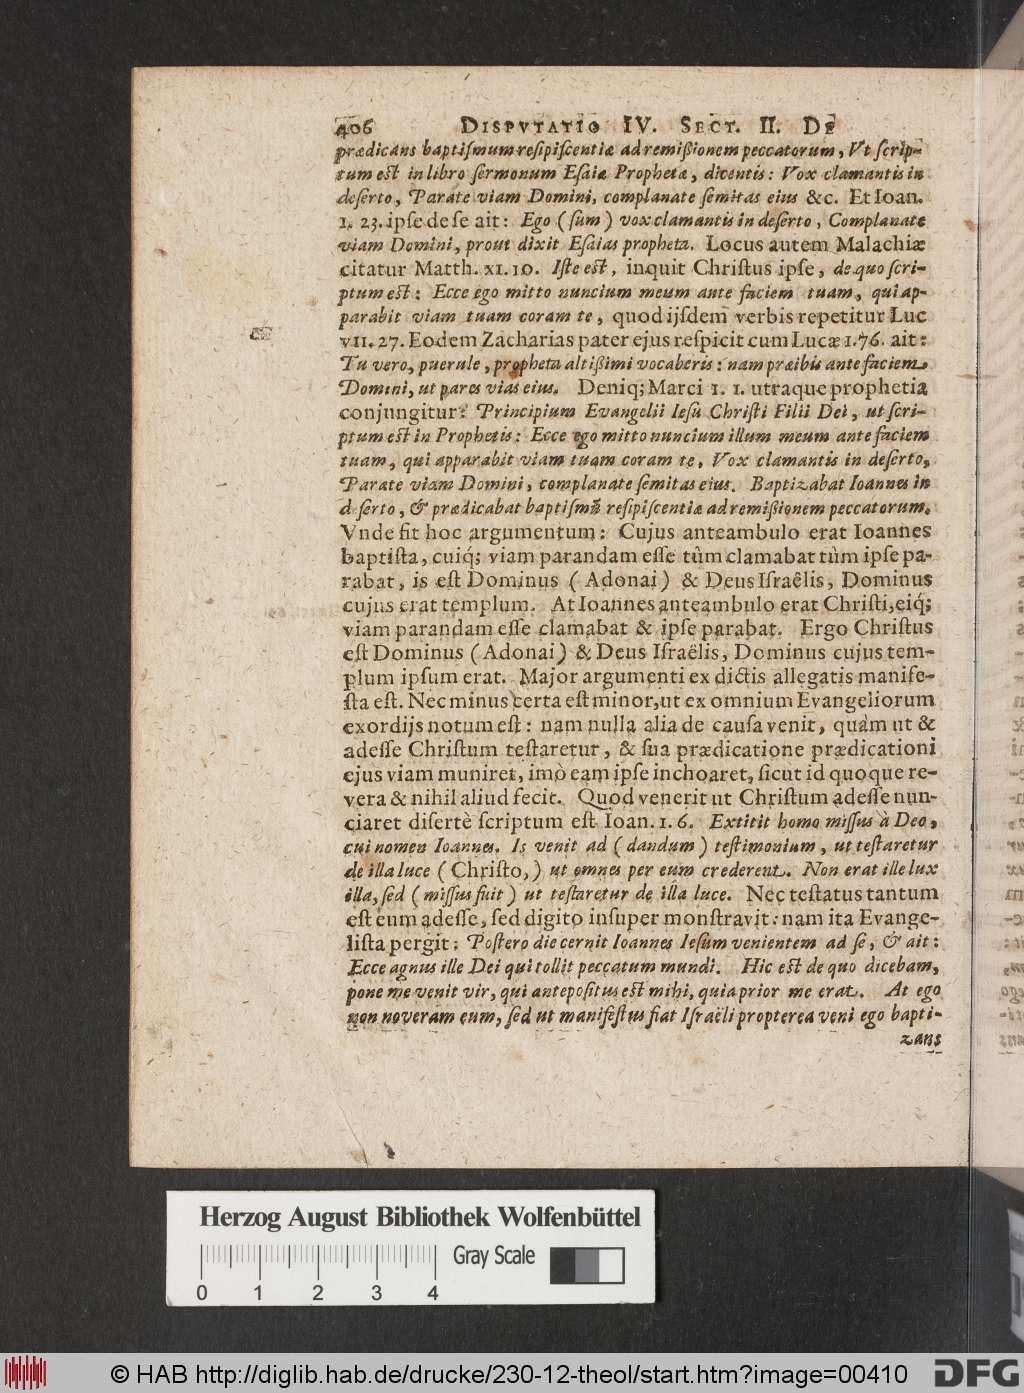 406 DISPVTATIO IV. SECT. II. DE
prædicans baptiſmum reſipiſcentiæ ad remißionem peccatorum, Vt ſcrip-
tum eſt in libro ſermonum Eſaiæ Prophetæ, dicentis: Vox clamantis in
deſerto, Parate viam Domini, complanate ſemitas eius &c. Et Ioan.
1. 23. ipſe de ſe ait: Ego (ſum) vox clamantis in deſerto, Complanate
viam Domini, prout dixit Eſaias propheta. Locus autem Malachiæ
citatur Matth. XI. 10. Iſte eſt, inquit Chriſtus ipſe, de quo ſcri-
ptum eſt: Ecce ego mitto nuncium meum ante faciem tuam, qui ap-
parabit viam tuam coram te, quod ijſdem verbis repetitur Luc
VII. 27. Eodem Zacharias pater ejus reſpicit cum Lucæ 1.76. ait:
Tu vero, puerule, propheta altißimi vocaberis: nam præibis ante faciem
Domini, ut pares vias eius. Deniq; Marci 1. 1. utraque prophetia
conjungitur: Principium Evangelii Ieſu Chriſti Filii Dei, ut ſcri-
ptum eſt in Prophetis: Ecce ego mitto nuncium illum meum ante faciem
tuam, qui apparabit viam tuam coram te, Vox clamantis in deſerto,
Parate viam Domini, complanate ſemitas eius. Baptizabat Ioannes in
deſerto, & prædicabat baptiſmũ reſipiſcentiæ ad remißionem peccatorum.
Vnde fit hoc argumentum: Cujus anteambulo erat Ioannes
baptiſta, cuiq́; viam parandam eſſe tùm clamabat tùm ipſe pa-
rabat, is eſt Dominus (Adonai) & Deus Iſraêlis, Dominus
cujus erat templum. At Ioannes anteambulo erat Chriſti, eiq́;
viam parandam eſſe clamabat & ipſe parabat. Ergo Chriſtus
eſt Dominus (Adonai) & Deus Iſraëlis, Dominus cujus tem-
plum ipſum erat. Major argumenti ex dictis allegatis manife-
ſta eſt. Nec minus certa eſt minor, ut ex omnium Evangeliorum
exordijs notum eſt: nam nulla alia de cauſa venit, quàm ut &
adeſſe Chriſtum teſtaretur, & ſua prædicatione prædicationi
ejus viam muniret, imò eam ipſe inchoaret, ſicut id quoque re-
vera & nihil aliud fecit. Quod venerit ut Chriſtum adeſſe nun-
ciaret diſertè ſcriptum eſt Ioan. 1. 6. Extitit homo miſſus à Deo,
cui nomen Ioannes. Is venit ad (dandum) teſtimonium, ut teſtaretur
de illa luce (Chriſto,) ut omnes per eum crederent. Non erat ille lux
illa, ſed (miſſus fuit) ut teſtaretur de illa luce. Nec teſtatus tantum
eſt eum adeſſe, ſed digito inſuper monſtravit: nam ita Evange-
liſta pergit: Poſtero die cernit Ioannes Ieſum venientem ad ſe, & ait:
Ecce agnus ille Dei qui tollit peccatum mundi. Hic eſt de quo dicebam,
pone me venit vir, qui antepoſitus eſt mihi, quia prior me erat. At ego
non noveram eum, ſed ut manifeſtus fiat Iſraëli propterea veni ego bapti-
zans
Herzog August Bibliothek Wolfenbüttel
Gray Scale
0 1 2 3 4
© HAB http://diglib.hab.de/drucke/230-12-theol/start.htm?image=00410
DFG